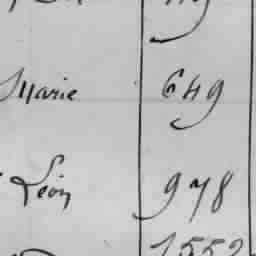 Marie 649
Léon 978
1552